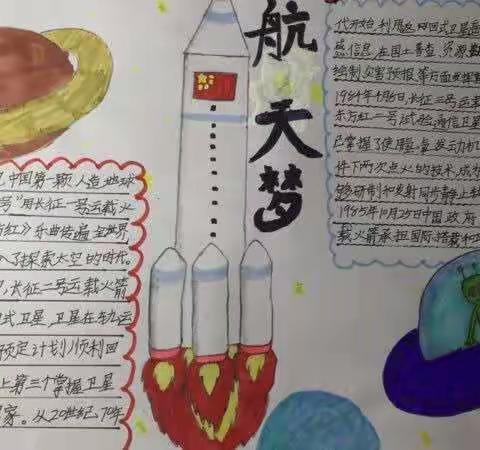 航天梦
中国第一颗人造地球
号"用长征一号运载火
红》乐曲传遍全世界
入了探索太空的时代。
长征二号运载火箭
式卫星,卫星在轨运
预定计划顺利回
上第三个掌握卫星
国家。从20世纪70年
代开始,利用返回式卫星遥
感信息,在国土普查,资源勘
绘制,灾害预报等方面发挥
1984年4月8日,长征三号运载
东方红二号试验通信卫星
已掌握了使用氢氧发动机
件下两次点火的技术,成为
够研制和发射同步静止轨
1985年10月25日中国政府
载火箭承担国际搭载和